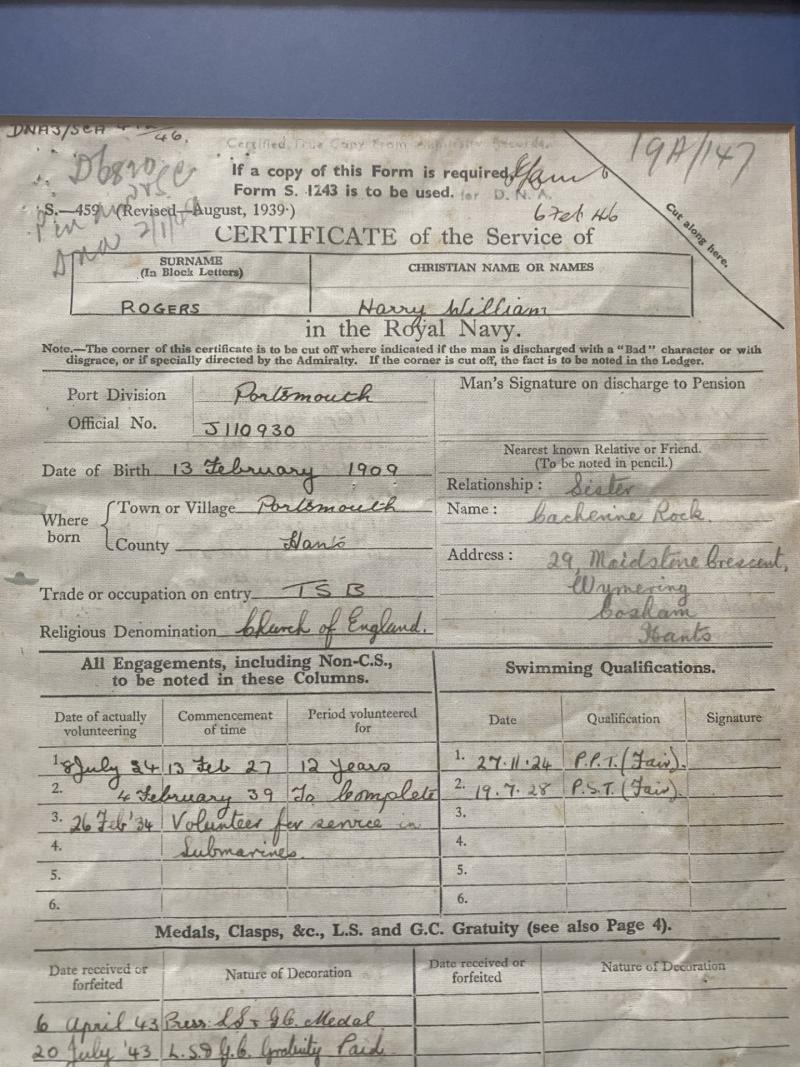 DNA3/SCA
46.
Certified True Copy From Admiralty Records.
19A/147
If a copy of this Form is required,
Form S. 1243 is to be used.
for D. N. A.
S.—459 (Revised—August, 1939.)
6 Feb 46
Cut along here.
DNA 2/1/
CERTIFICATE of the Service of
SURNAME
(In Block Letters)
CHRISTIAN NAME OR NAMES
ROGERS
Harry William
in the Royal Navy.
Note.—The corner of this certificate is to be cut off where indicated if the man is discharged with a "Bad" character or with
disgrace, or if specially directed by the Admiralty. If the corner is cut off, the fact is to be noted in the Ledger.
Port Division Portsmouth
Official No. J110930
Date of Birth 13 February 1909
Where born
Town or Village Portsmouth
County Hants
Trade or occupation on entry TSB
Religious Denomination Church of England.
Man's Signature on discharge to Pension
Nearest known Relative or Friend.
(To be noted in pencil.)
Relationship: Sister
Name: Catherine Rock.
Address: 29, Maidstone Crescent,
Wymering
Cosham
Hants
All Engagements, including Non-C.S.,
to be noted in these Columns.
Date of actually volunteering
Commencement of time
Period volunteered for
1. 8 July 24 13 Feb 27 12 Years
2. 4 February 39 To Complete
3. 26 Feb '34 Volunteer for service in
4. Submarines.
5.
6.
Swimming Qualifications.
Date Qualification Signature
1. 27.11.24 P.P.T. (Fair).
2. 19.7.28 P.S.T. (Fair).
3.
4.
5.
6.
Medals, Clasps, &c., L.S. and G.C. Gratuity (see also Page 4).
Date received or forfeited
Nature of Decoration
Date received or forfeited
Nature of Decoration
6 April 43 Press: LS & GC Medal
20 July '43 L.S & G.C. Gratuity Paid